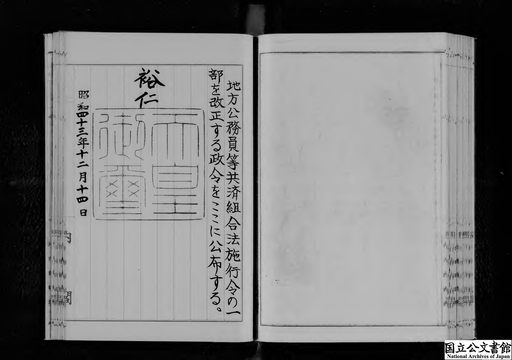 地方公務員等共済組合法施行令の一
部を改正する政令をここに公布する。
裕仁
天皇
御璽
昭和四十三年十二月十四日
国立公文書館
National Archives of Japan